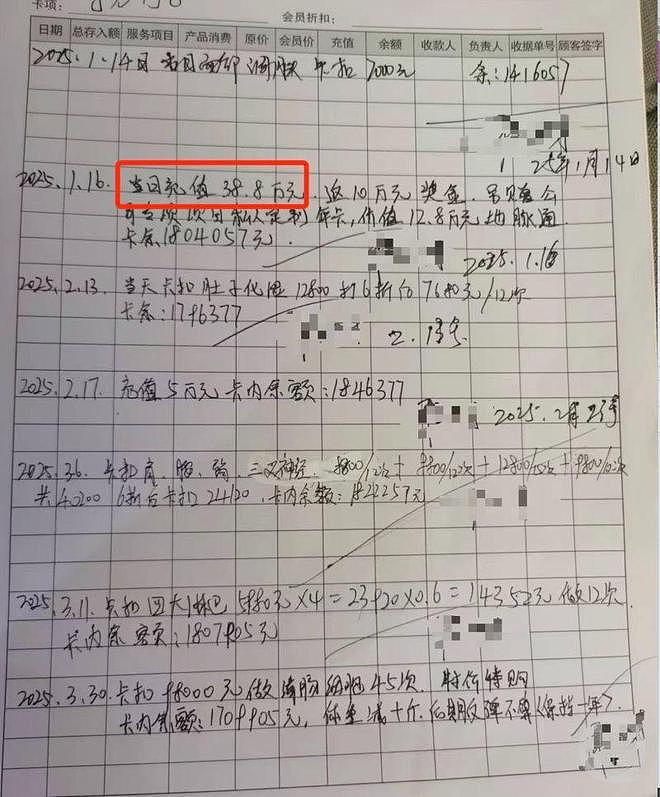 卡项：
会员折扣：
日期 总存入额 服务项目 产品消费 原价 会员价 充值 余额 收款人 负责人 收据单号 顾客签字
2025.1.14日 卡扣 7000元 余：1416057
25年1月14日
2025.1.16. 当日充值 38.8万元. 返10万元 奖金.
私人定制 年卡, 价值 12.8万元 地脉通
卡余 1804057元.
2025.1.16
2025.2.13. 当天卡扣 肚子化湿 12800 打6折后 7680元/12次
卡余：1796377
2.13号
2025.2.17. 充值5万元 卡内余额：1846377
2025.2月
2025.3.6. 卡扣 肩、三叉神经. 9800/12次 + 12800/12次 + 9800/12次
共 40200 6折后卡扣 24120. 卡内余额：1822257元
2025.3.11. 卡扣 四大淋巴 5980元×4=23920×0.6=14352元 做12次.
卡内余额：1807905元
2025.3.30. 卡扣 98000元 做 45次. 特价特购
卡内余额：1709905元, 体重减十斤. 后期反弹不算(保持一年).